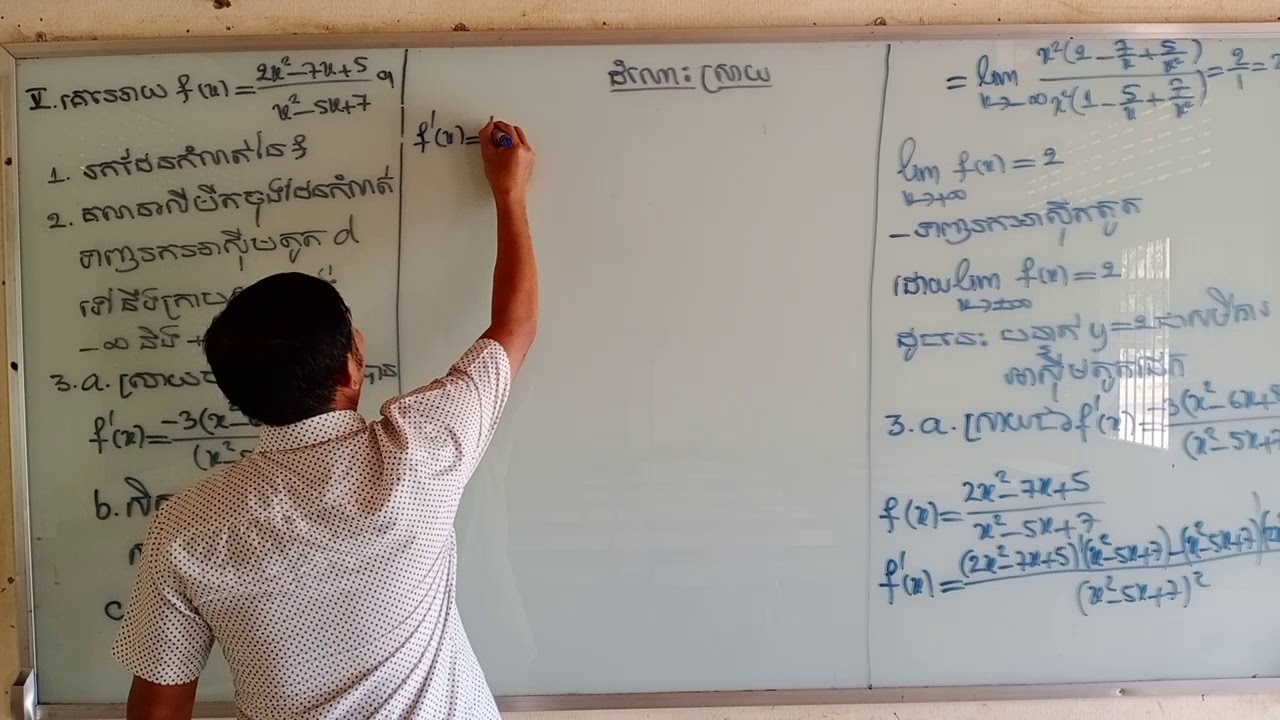 V. គេអោយ f(x) = (2x² - 7x + 5)/(x² - 5x + 7)
1. រកដែនកំណត់នៃ f
2. គណនាលីមីតចុងដែនកំណត់
ទាញរកអាស៊ីមតូត d
ទៅនឹងក្រាប
-∞ និង +
3. a. ស្រាយ បាន
f'(x) = -3(x² / (x² - 5
b.
c
ដំណោះស្រាយ
f'(x) =
= lim x→-∞ x²(2 - 7/x + 5/x²) / x²(1 - 5/x + 7/x²) = 2/1 = 2
lim x→+∞ f(x) = 2
- ទាញរកអាស៊ីមតូត
ដោយ lim x→±∞ f(x) = 2
ដូចនេះ បន្ទាត់ y = 2 ជាសមីការ
អាស៊ីមតូតដេក
3. a. ស្រាយថា f'(x) = -3(x² - 6x + 5 / (x² - 5x + 7
f(x) = (2x² - 7x + 5)/(x² - 5x + 7)
f'(x) = (2x² - 7x + 5)'(x² - 5x + 7) - (x² - 5x + 7)'(2x / (x² - 5x + 7)²